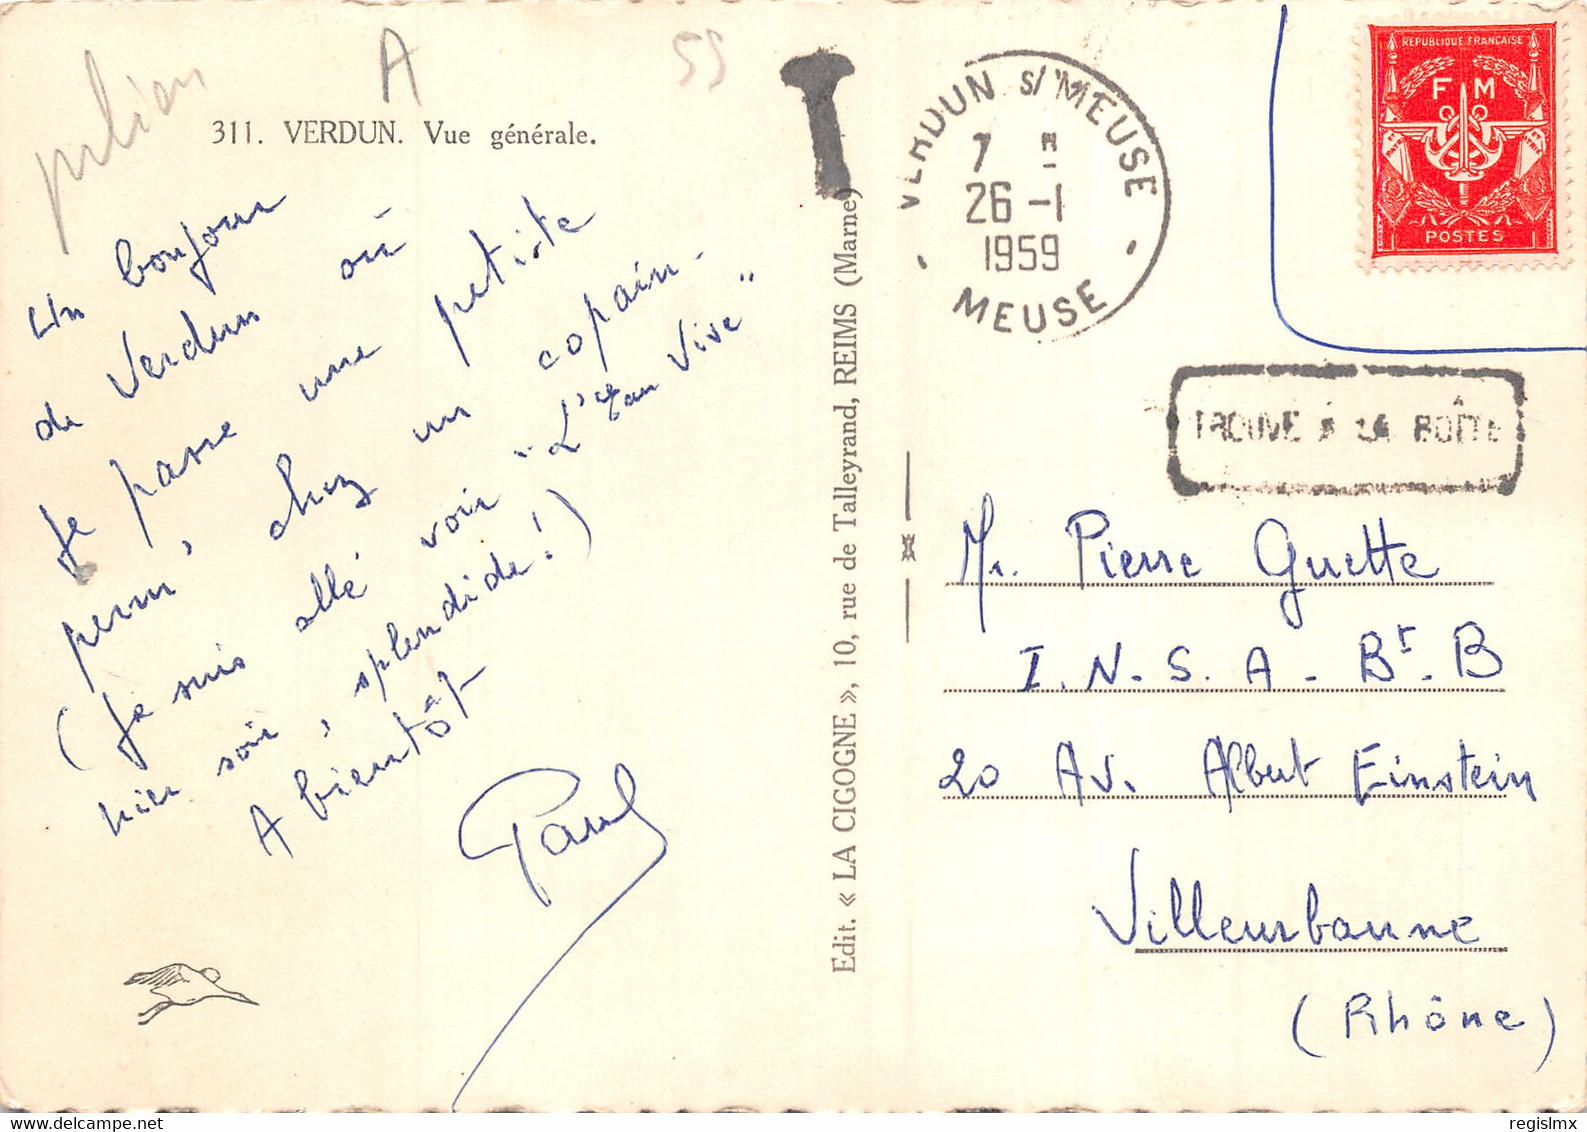 julian
A
55
311. VERDUN. Vue générale.
Un bonjour
de Verdun où
Je passe une petite
perm, chez un copain.
(Je suis allé voir "L'Eau Vive"
hier soir, splendide!)
A bientôt
Paul
Edit. « LA CIGOGNE », 10, rue de Talleyrand, REIMS (Marne)
VERDUN S/ MEUSE
7 H
26 -1
1959
MEUSE
REPUBLIQUE FRANÇAISE
F M
ET PATRIE
POSTES
TROUVE A LA BOÎTE
Mr. Pierre Guette
I. N. S. A - Bt. B
20 Av. Albert Einstein
Villeurbanne
(Rhône)
delcampe.net
regislmx